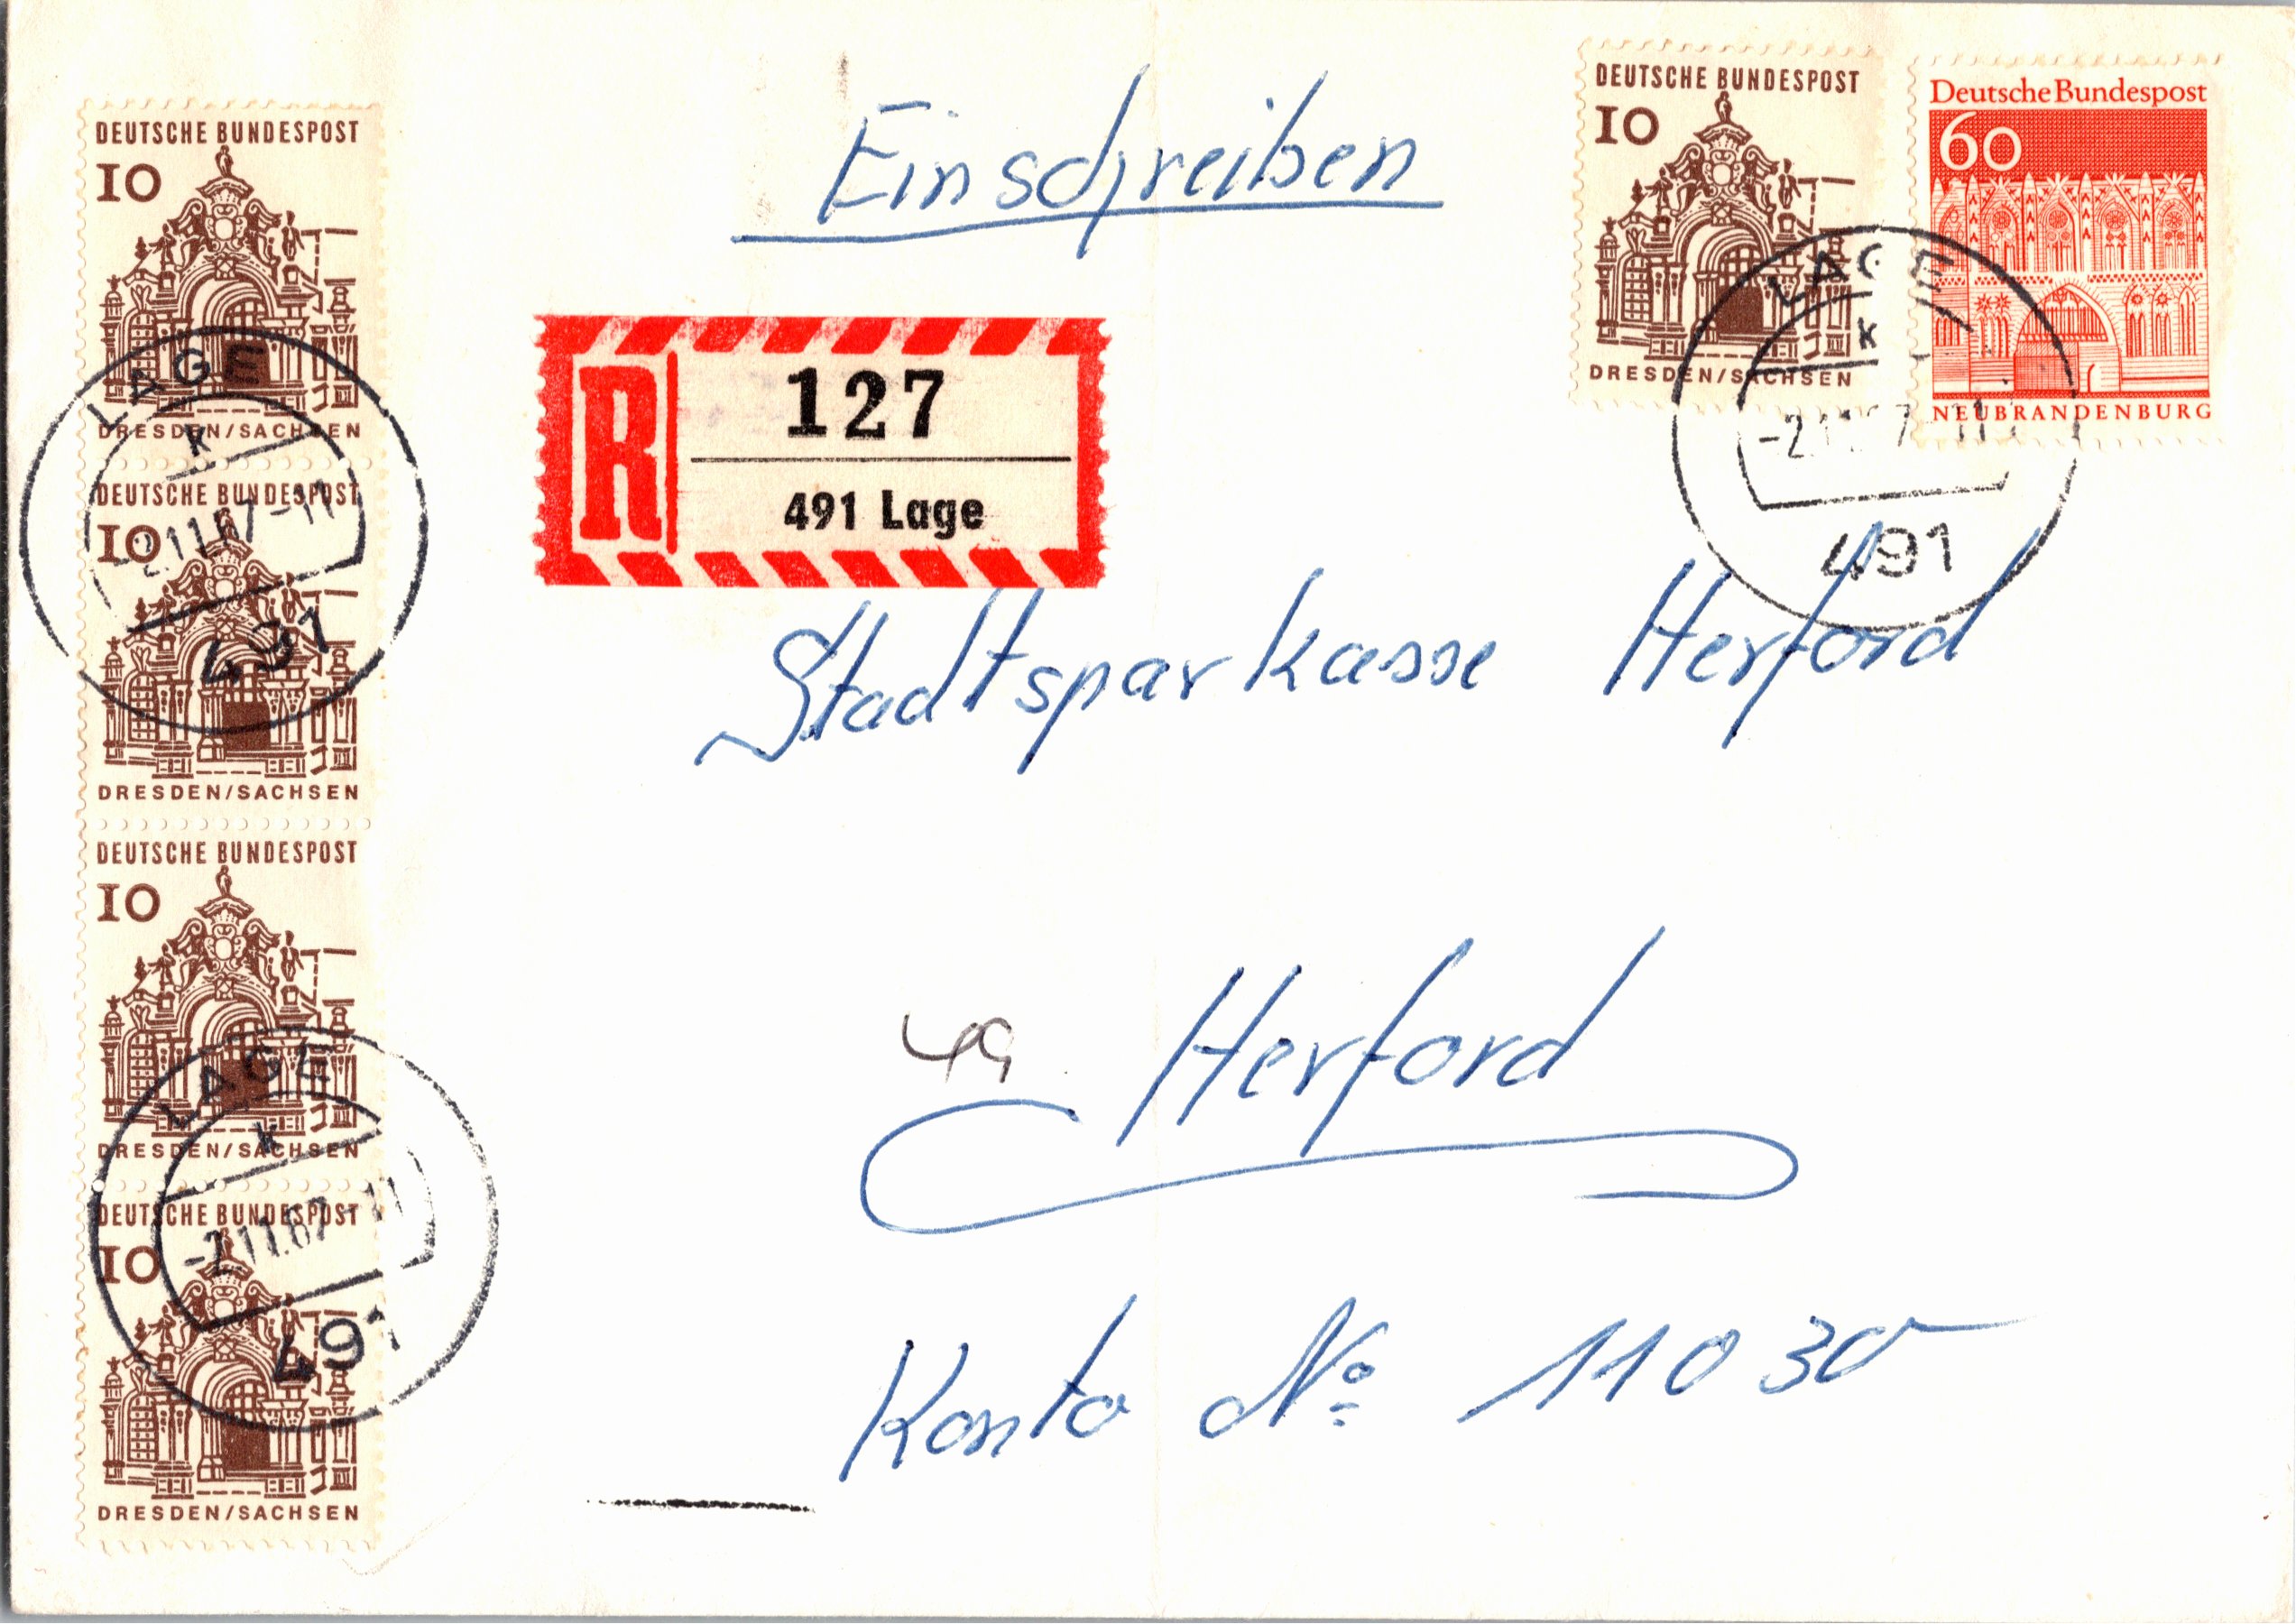 Einschreiben
DEUTSCHE BUNDESPOST
10
DRESDEN/SACHSEN
Deutsche Bundespost
60
NEUBRANDENBURG
LAGE
k
491
DEUTSCHE BUNDESPOST
10
DRESDEN/SACHSEN
DEUTSCHE BUNDESPOST
10
DRESDEN/SACHSEN
LAGE
k
-2.11.67-11
491
DEUTSCHE BUNDESPOST
10
DRESDEN/SACHSEN
DEUTSCHE BUNDESPOST
10
DRESDEN/SACHSEN
LAGE
k
-2.11.67-11
491
R
127
491 Lage
Stadtsparkasse Herford
49 Herford
Konto No 11030